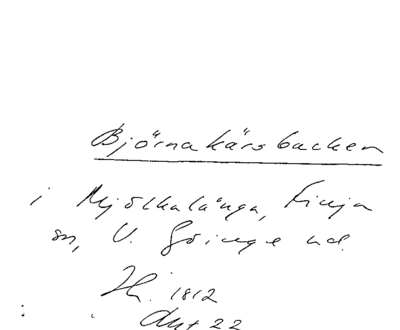 Björnakärsbacken
i Mjölkalånga, Finja
sn, V. Göinge hd.
Hi. 1812
Akt 22